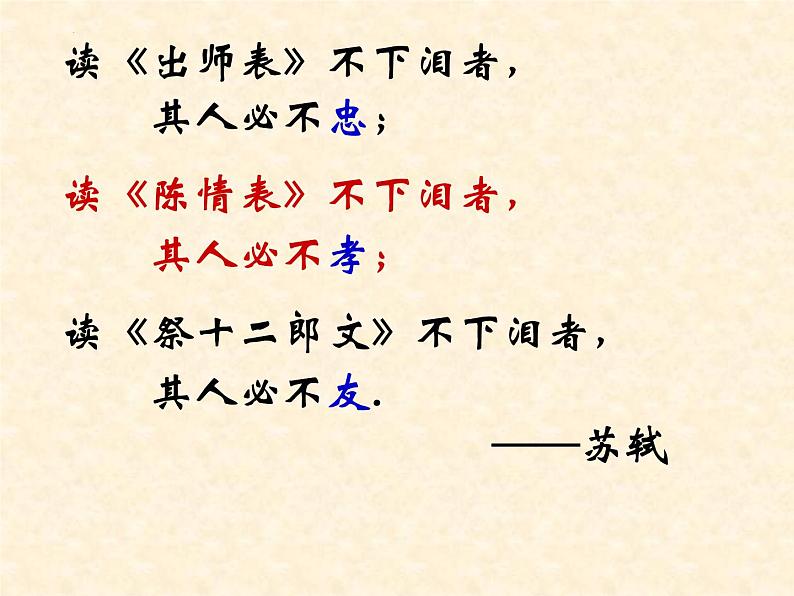 读《出师表》不下泪者，
其人必不忠；
读《陈情表》不下泪者，
其人必不孝；
读《祭十二郎文》不下泪者，
其人必不友.
——苏轼